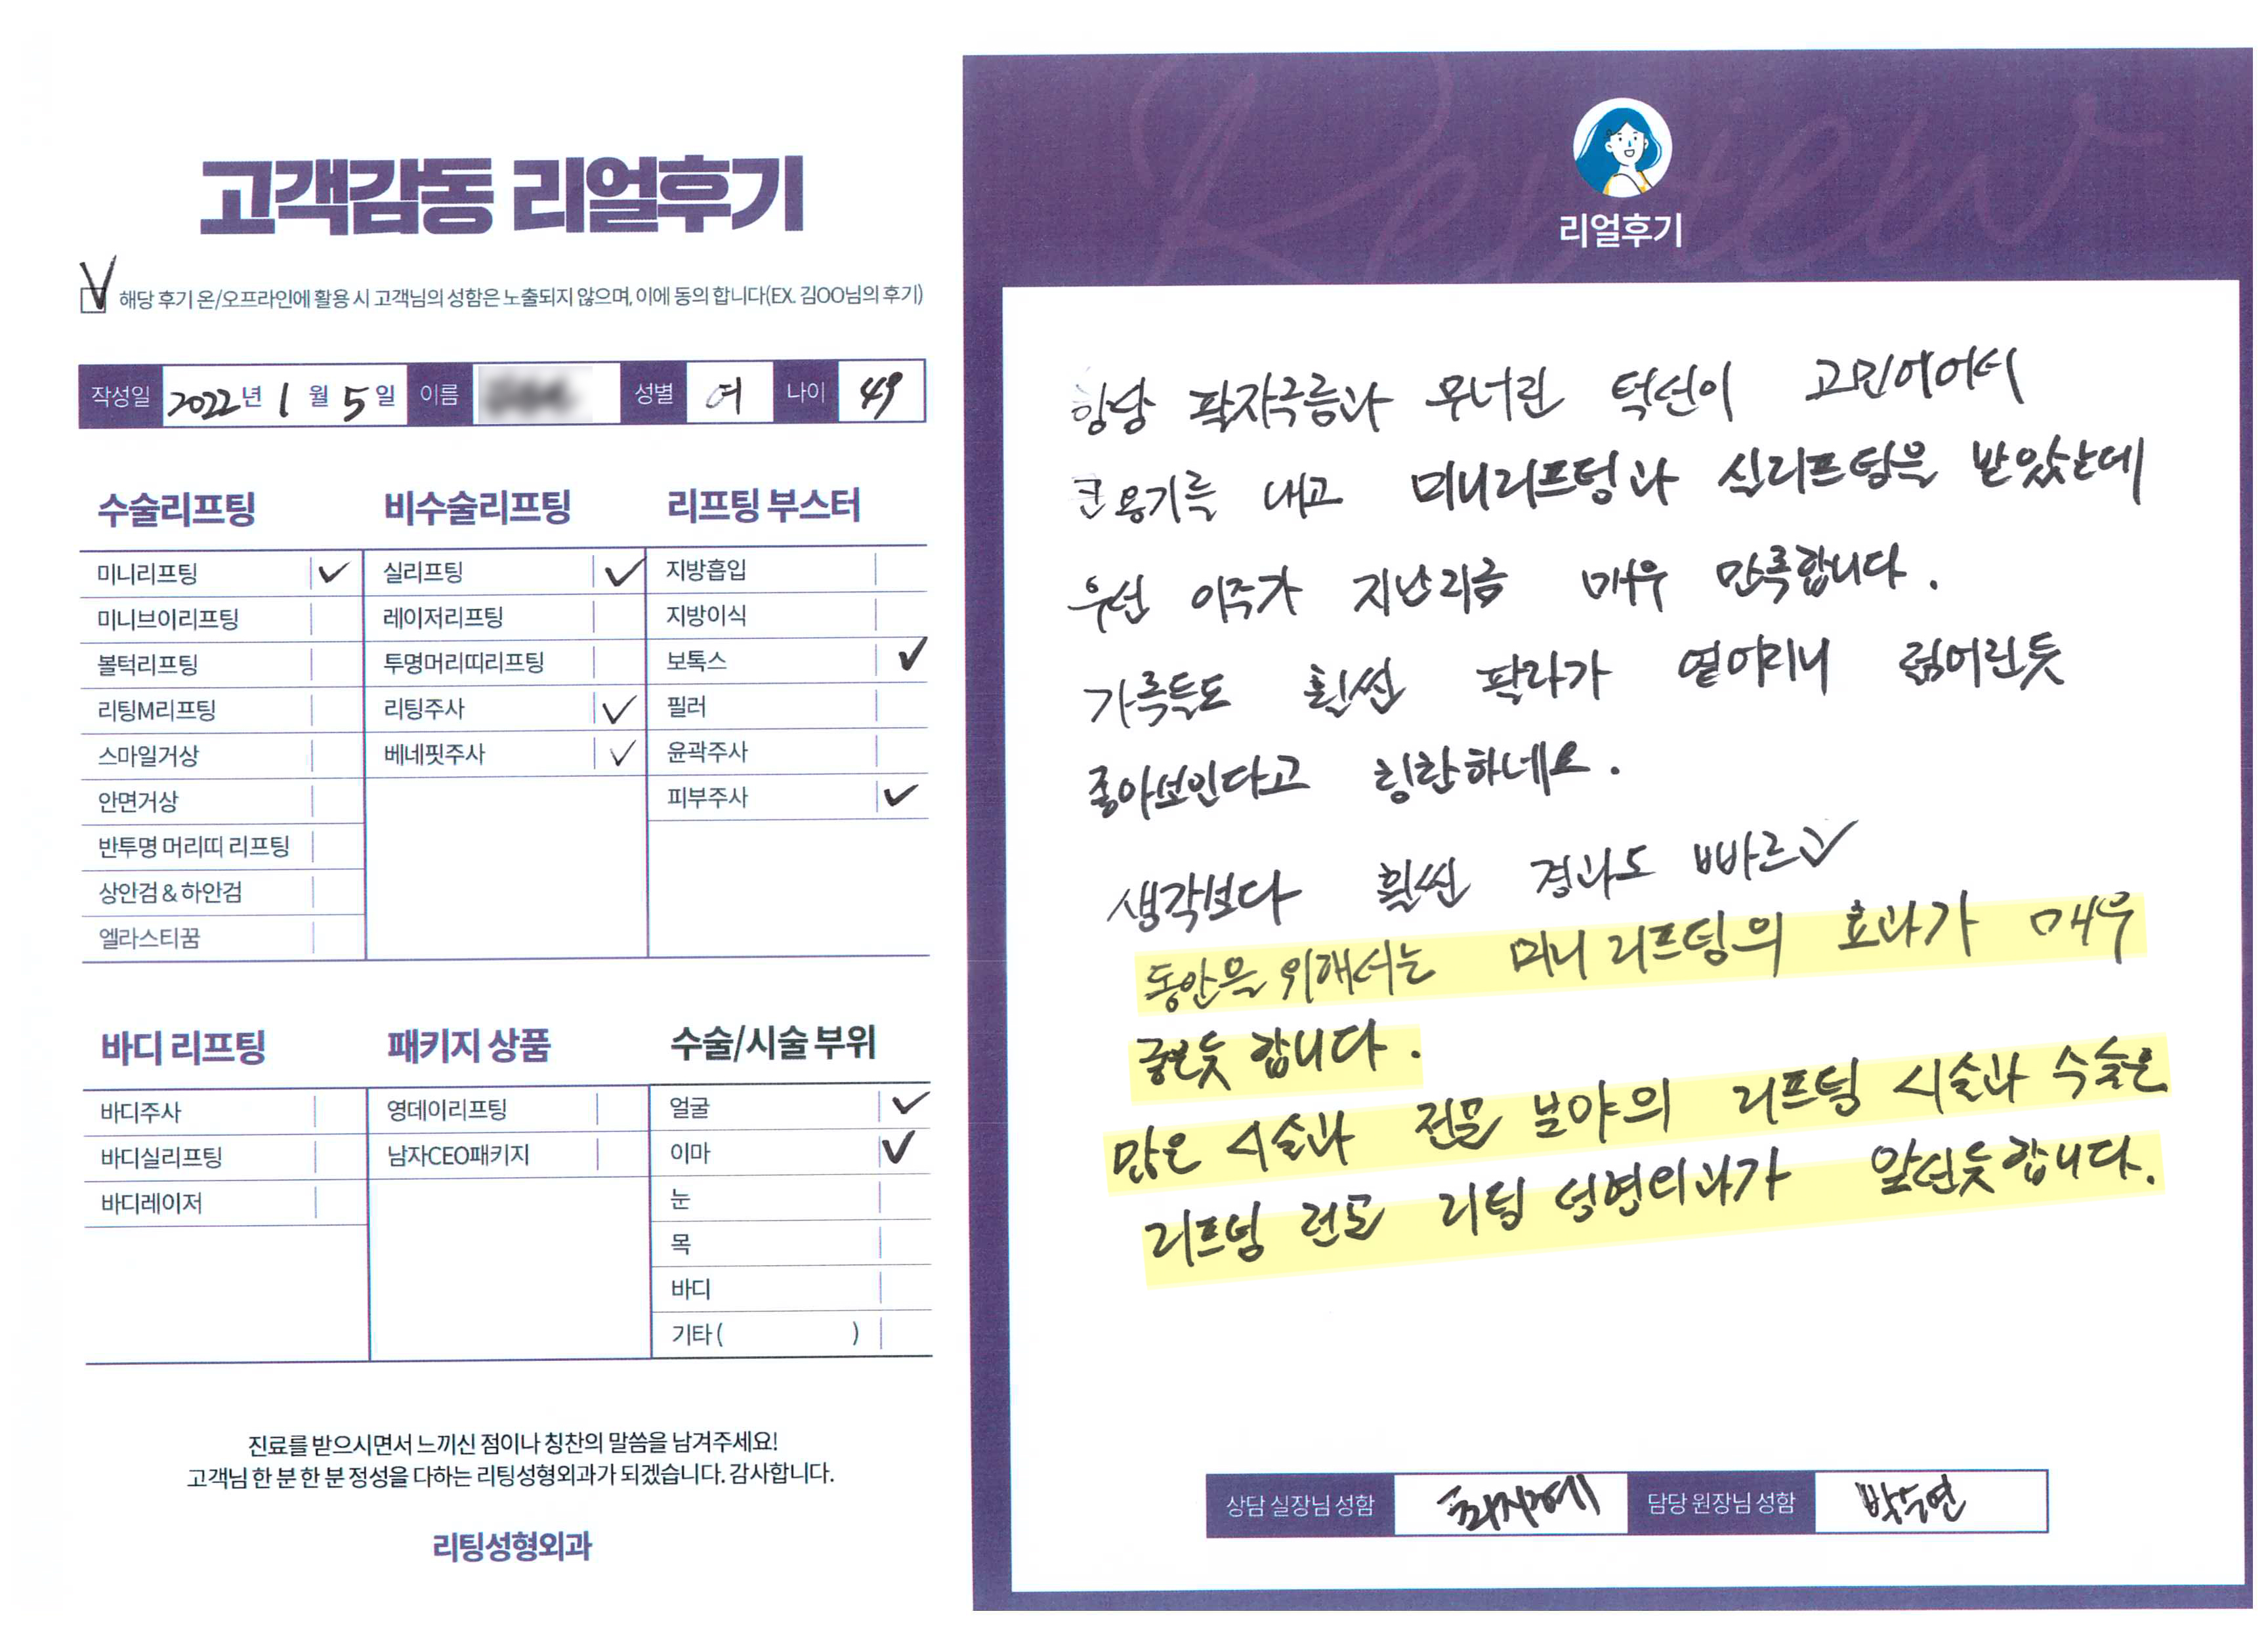 고객감동 리얼후기
해당 후기 온/오프라인에 활용 시 고객님의 성함은 노출되지 않으며, 이에 동의 합니다(EX. 김OO님의 후기)
작성일 2022년 1월 5일 이름 성별 여 나이 49
수술리프팅
미니리프팅
미니브이리프팅
볼턱리프팅
리팅M리프팅
스마일거상
안면거상
반투명 머리띠 리프팅
상안검 & 하안검
엘라스티꿈
비수술리프팅
실리프팅
레이저리프팅
투명머리띠리프팅
리팅주사
베네핏주사
리프팅 부스터
지방흡입
지방이식
보톡스
필러
윤곽주사
피부주사
바디 리프팅
바디주사
바디실리프팅
바디레이저
패키지 상품
영데이리프팅
남자CEO패키지
수술/시술 부위
얼굴
이마
눈
목
바디
기타 ( )
진료를 받으시면서 느끼신 점이나 칭찬의 말씀을 남겨주세요!
고객님 한 분 한 분 정성을 다하는 리팅성형외과가 되겠습니다. 감사합니다.
리팅성형외과
Review
리얼후기
항상 팔자주름과 무너린 턱선이 고민이어서
큰 용기를 내고 미니리프팅과 실리프팅을 받았는데
우선 이주가 지난 지금 매우 만족합니다.
가족들도 훨씬 팔자가 옅어지니 젊어진듯
좋아보인다고 칭찬하네요.
생각보다 훨씬 경과도 빠르고
동안을 위해서는 미니 리프팅의 효과가 매우
큰듯 합니다.
많은 시술과 전문 분야의 리프팅 시술과 수술은
리프팅 전문 리팅 성형외과가 앞선듯합니다.
상담 실장님 성함 담당 원장님 성함